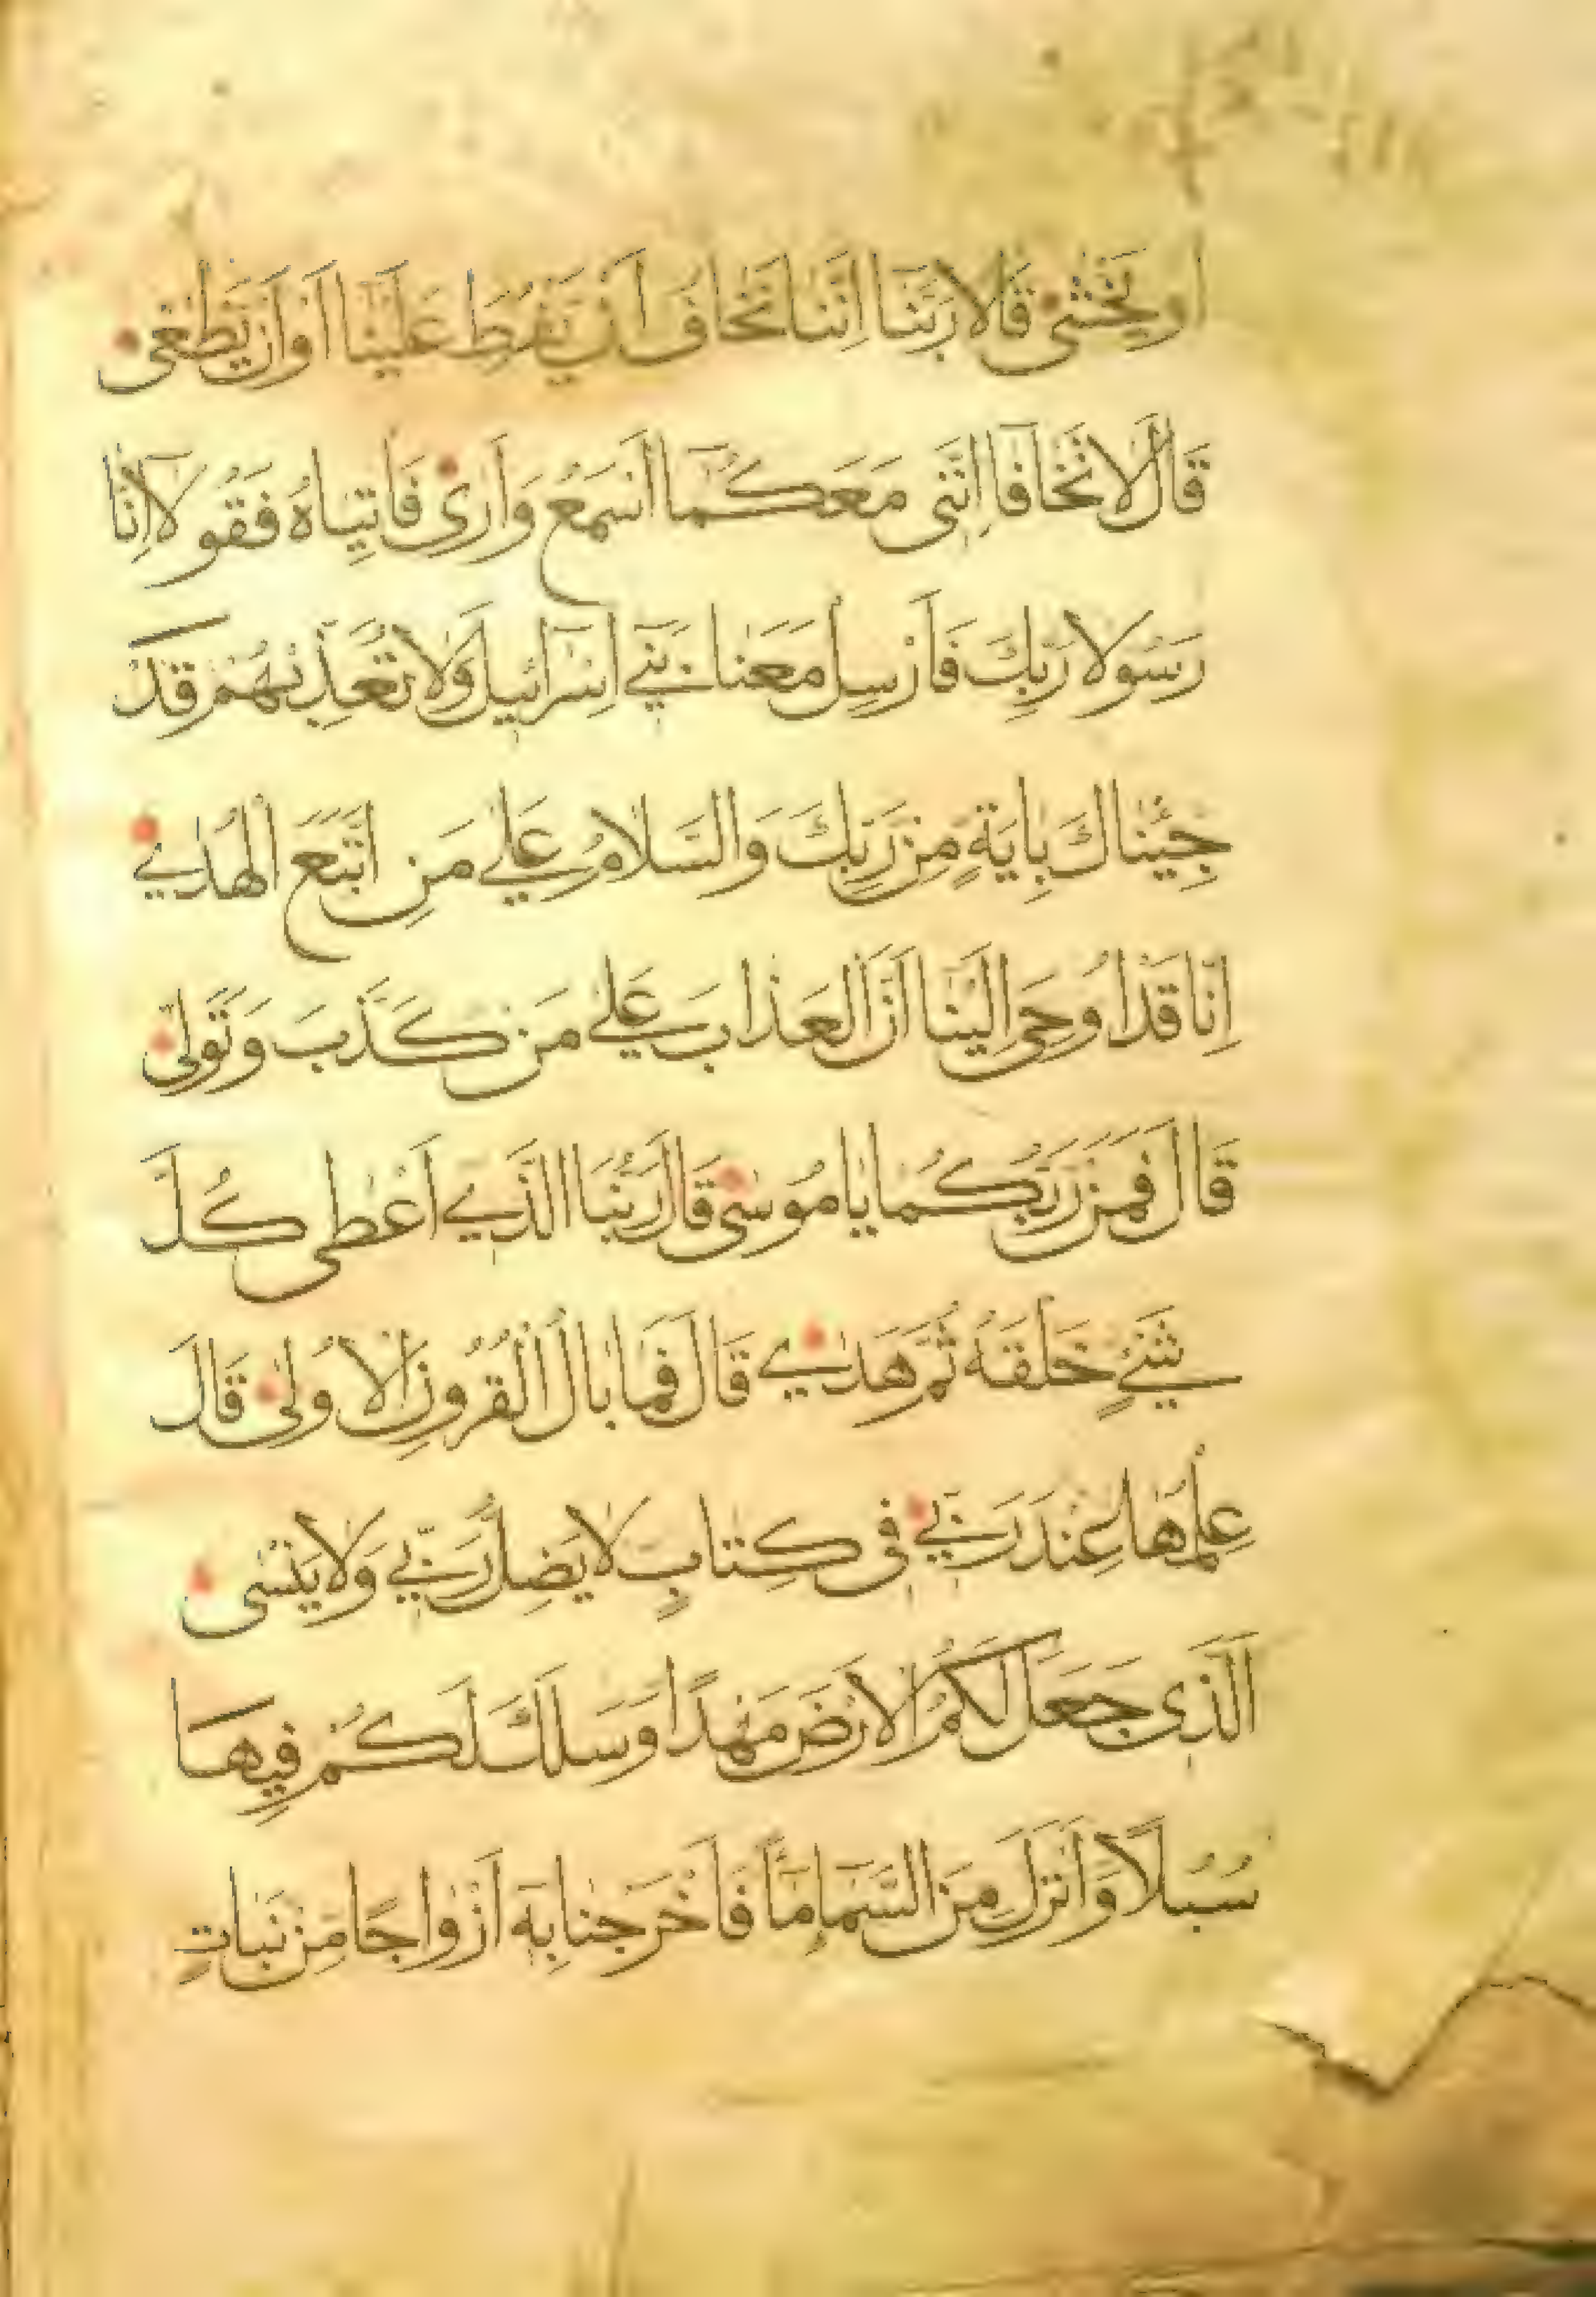 اَوْ يَخْشٰى قَالَا رَبَّنَا اِنَّنَا نَخَافُ اَنْ يَفْرُطَ عَلَيْنَا اَوْ اَنْ يَطْغٰى
قَالَ لَا تَخَافَا اِنَّنِى مَعَكُمَا اَسْمَعُ وَاَرٰى فَاْتِيَاهُ فَقُولَا اِنَّا
رَسُولَا رَبِّكَ فَاَرْسِلْ مَعَنَا بَنِي اِسْرَائِيلَ وَلَا تُعَذِّبْهُمْ قَدْ
جِئْنَاكَ بِاٰيَةٍ مِنْ رَبِّكَ وَالسَّلَامُ عَلٰي مَنِ اتَّبَعَ الْهُدٰي
اِنَّا قَدْ اُوحِىَ اِلَيْنَا اَنَّ الْعَذَابَ عَلٰي مَنْ كَذَّبَ وَتَوَلّٰى
قَالَ فَمَنْ رَبُّكُمَا يَا مُوسٰى قَالَ رَبُّنَا الَّذِي اَعْطٰى كُلَّ
شَيْءٍ خَلْقَهُ ثُمَّ هَدٰي قَالَ فَمَا بَالُ الْقُرُونِ الْاُولٰى قَالَ
عِلْمُهَا عِنْدَ رَبِّي فِى كِتَابٍ لَا يَضِلُّ رَبِّي وَلَا يَنْسٰى
اَلَّذِى جَعَلَ لَكُمُ الْاَرْضَ مَهْدًا وَسَلَكَ لَكُمْ فِيهَا
سُبُلًا وَاَنْزَلَ مِنَ السَّمَاءِ مَاءً فَاَخْرَجْنَا بِهِ اَزْوَاجًا مِنْ نَبَاتٍ